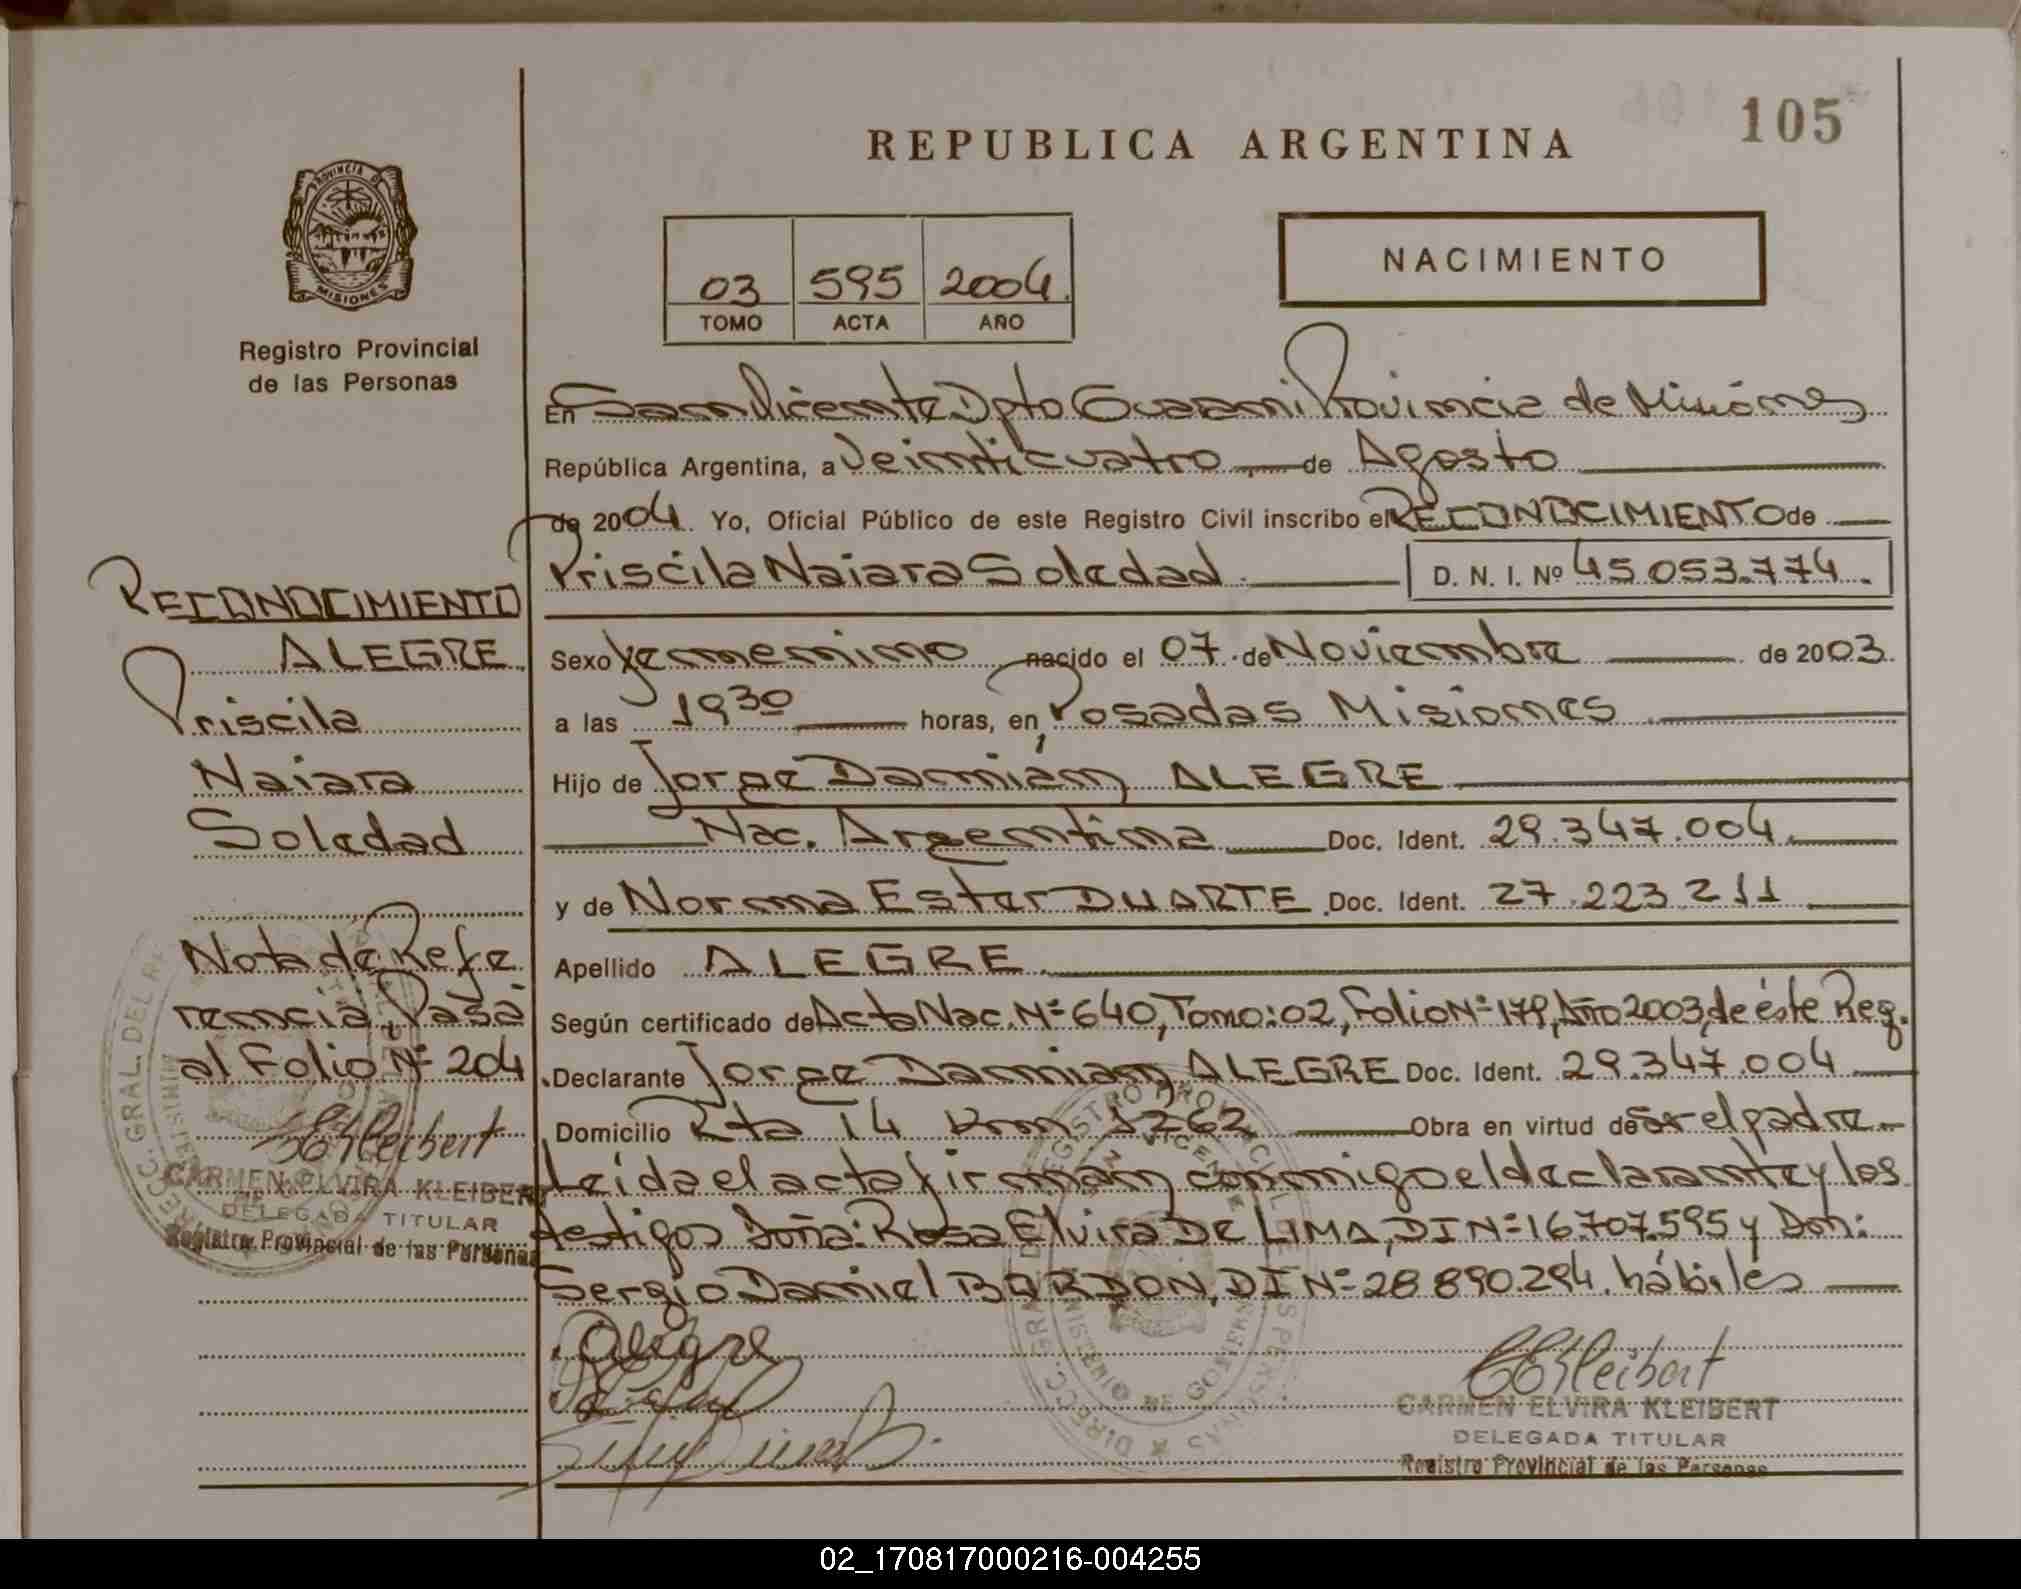 105
REPUBLICA ARGENTINA
PROVINCIA DE
MISIONES
Registro Provincial
de las Personas
03 595 2004
TOMO ACTA AÑO
NACIMIENTO
En San Vicente Dpto Guaraní Provincia de Misiónes
República Argentina, a Veinticuatro de Agosto
de 2004 Yo, Oficial Público de este Registro Civil inscribo el RECONOCIMIENTO de
Priscila Naiara Soledad D. N. I. Nº 45 053.774.
Sexo femenino nacido el 07 de Noviembre de 2003
a las 19 30 horas, en Posadas Misiones
Hijo de Jorge Damián ALEGRE
Nac. Argentina Doc. Ident. 29.347.004
y de Norma Ester DUARTE Doc. Ident. 27.223.211
Apellido ALEGRE
Según certificado de Acta Nac. Nº 640, Tomo: 02, Folio Nº 179, Año 2003, de éste Reg.
Declarante Jorge Damian ALEGRE Doc. Ident. 29.347.004
Domicilio Rta 14 Km 1262 Obra en virtud de Ser el padre
Leída el acta firman conmigo el declarante y los
testigos Doña: Rosa Elvira DE LIMA, DI Nº 16.707.595 y Don:
Sergio Daniel BARDON, DI Nº 28 890.294. hábiles
Alegre
CEKleibert
CARMEN ELVIRA KLEIBERT
DELEGADA TITULAR
Registro Provincial de las Personas
RECONOCIMIENTO
ALEGRE
Priscila
Naiara
Soledad
Nota de Refe
rencia, Pasa
al Folio Nº 204
CEKleibert
CARMEN ELVIRA KLEIBERT
DELEGADA TITULAR
Registro Provincial de las Personas
02_170817000216-004255